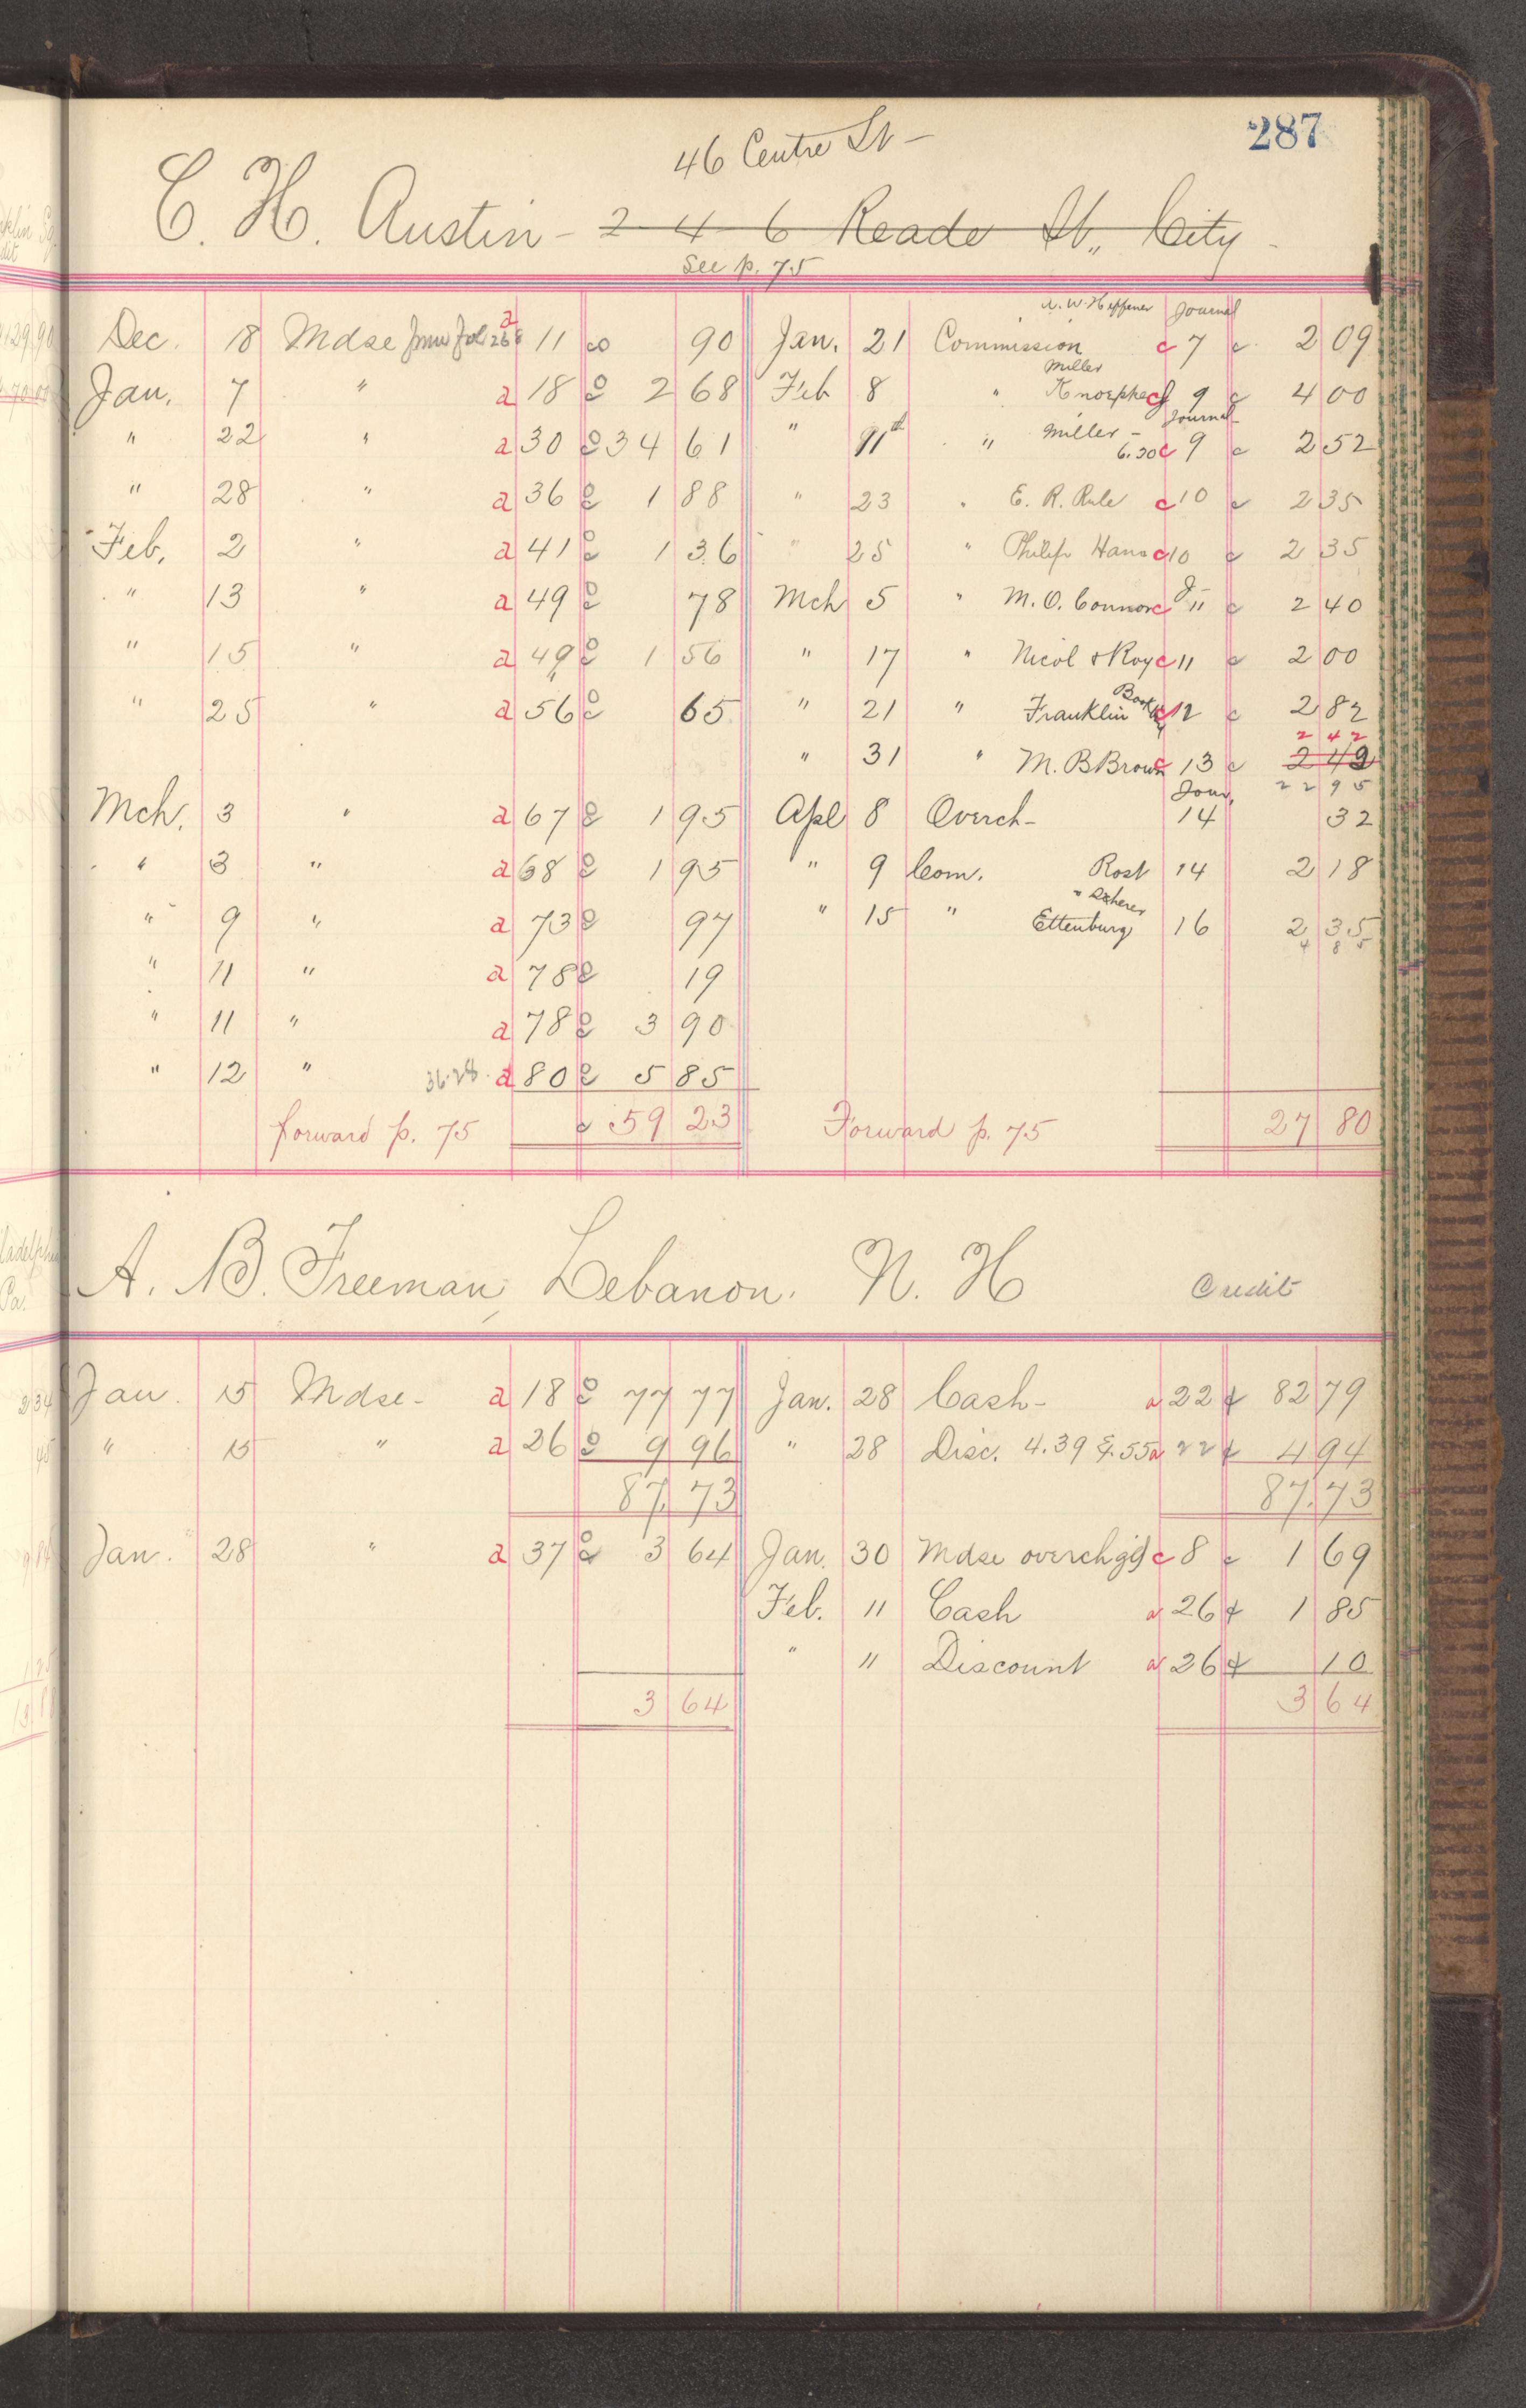 287
46 Centre St –
C. H. Austin – 2 4 6 Reade St., City –
See p. 75
Dec. 18 Mdse from Fol 268 a 11 co 90 Jan. 21 Commission Journal c 7 c 2 09
Jan. 7 " a 18 c 2 68 Feb 8 " Miller c 9 c 4 00
" 22 " a 30 c 34 61 " 11th " Miller – 6.30 Journal c 9 c 2 52
" 28 " a 36 c 1 88 " 23 " E. R. Rule c 10 c 2 35
Feb. 2 " a 41 c 1 36 " 25 " Philip Hans c 10 c 2 35
" 13 " a 49 c 78 Mch 5 " M. O. Connor c J– 11 c 2 40
" 15 " a 49 c 1 56 " 17 " Nicol & Roy c 11 c 2 00
" 25 " a 56 c 65 " 21 " Franklin c 12 c 2 82
2 42
" 31 " M. B Brown c 13 c 2 49
22 95
Mch. 3 " a 67 c 1 95 Apl 8 Overch– Jour. 14 32
" 3 " a 68 c 1 95 " 9 Com. Rost 14 2 18
" 9 " a 73 c 97 " 15 " " Ettenburg 16 2 35
4 85
" 11 " a 78 c 19
" 11 " a 78 c 3 90
" 12 " 36.28 a 80 c 5 85
forward p. 75 c 59 23 Forward p. 75 27 80
A. B. Freeman, Lebanon. N. H Credit
Jan. 15 Mdse – a 18 c 77 77 Jan. 28 Cash – a 22 ¢ 82 79
" 15 " a 26 c 9 96 " 28 Disc. 4.39 & .55 a 22 ¢ 4 94
87 73 87.73
Jan. 28 " a 37 c 3 64 Jan. 30 Mdse overchg'd c 8 c 1 69
Feb. 11 Cash a 26 ¢ 1 85
" 11 Discount a 26 ¢ 10
3 64 3 64